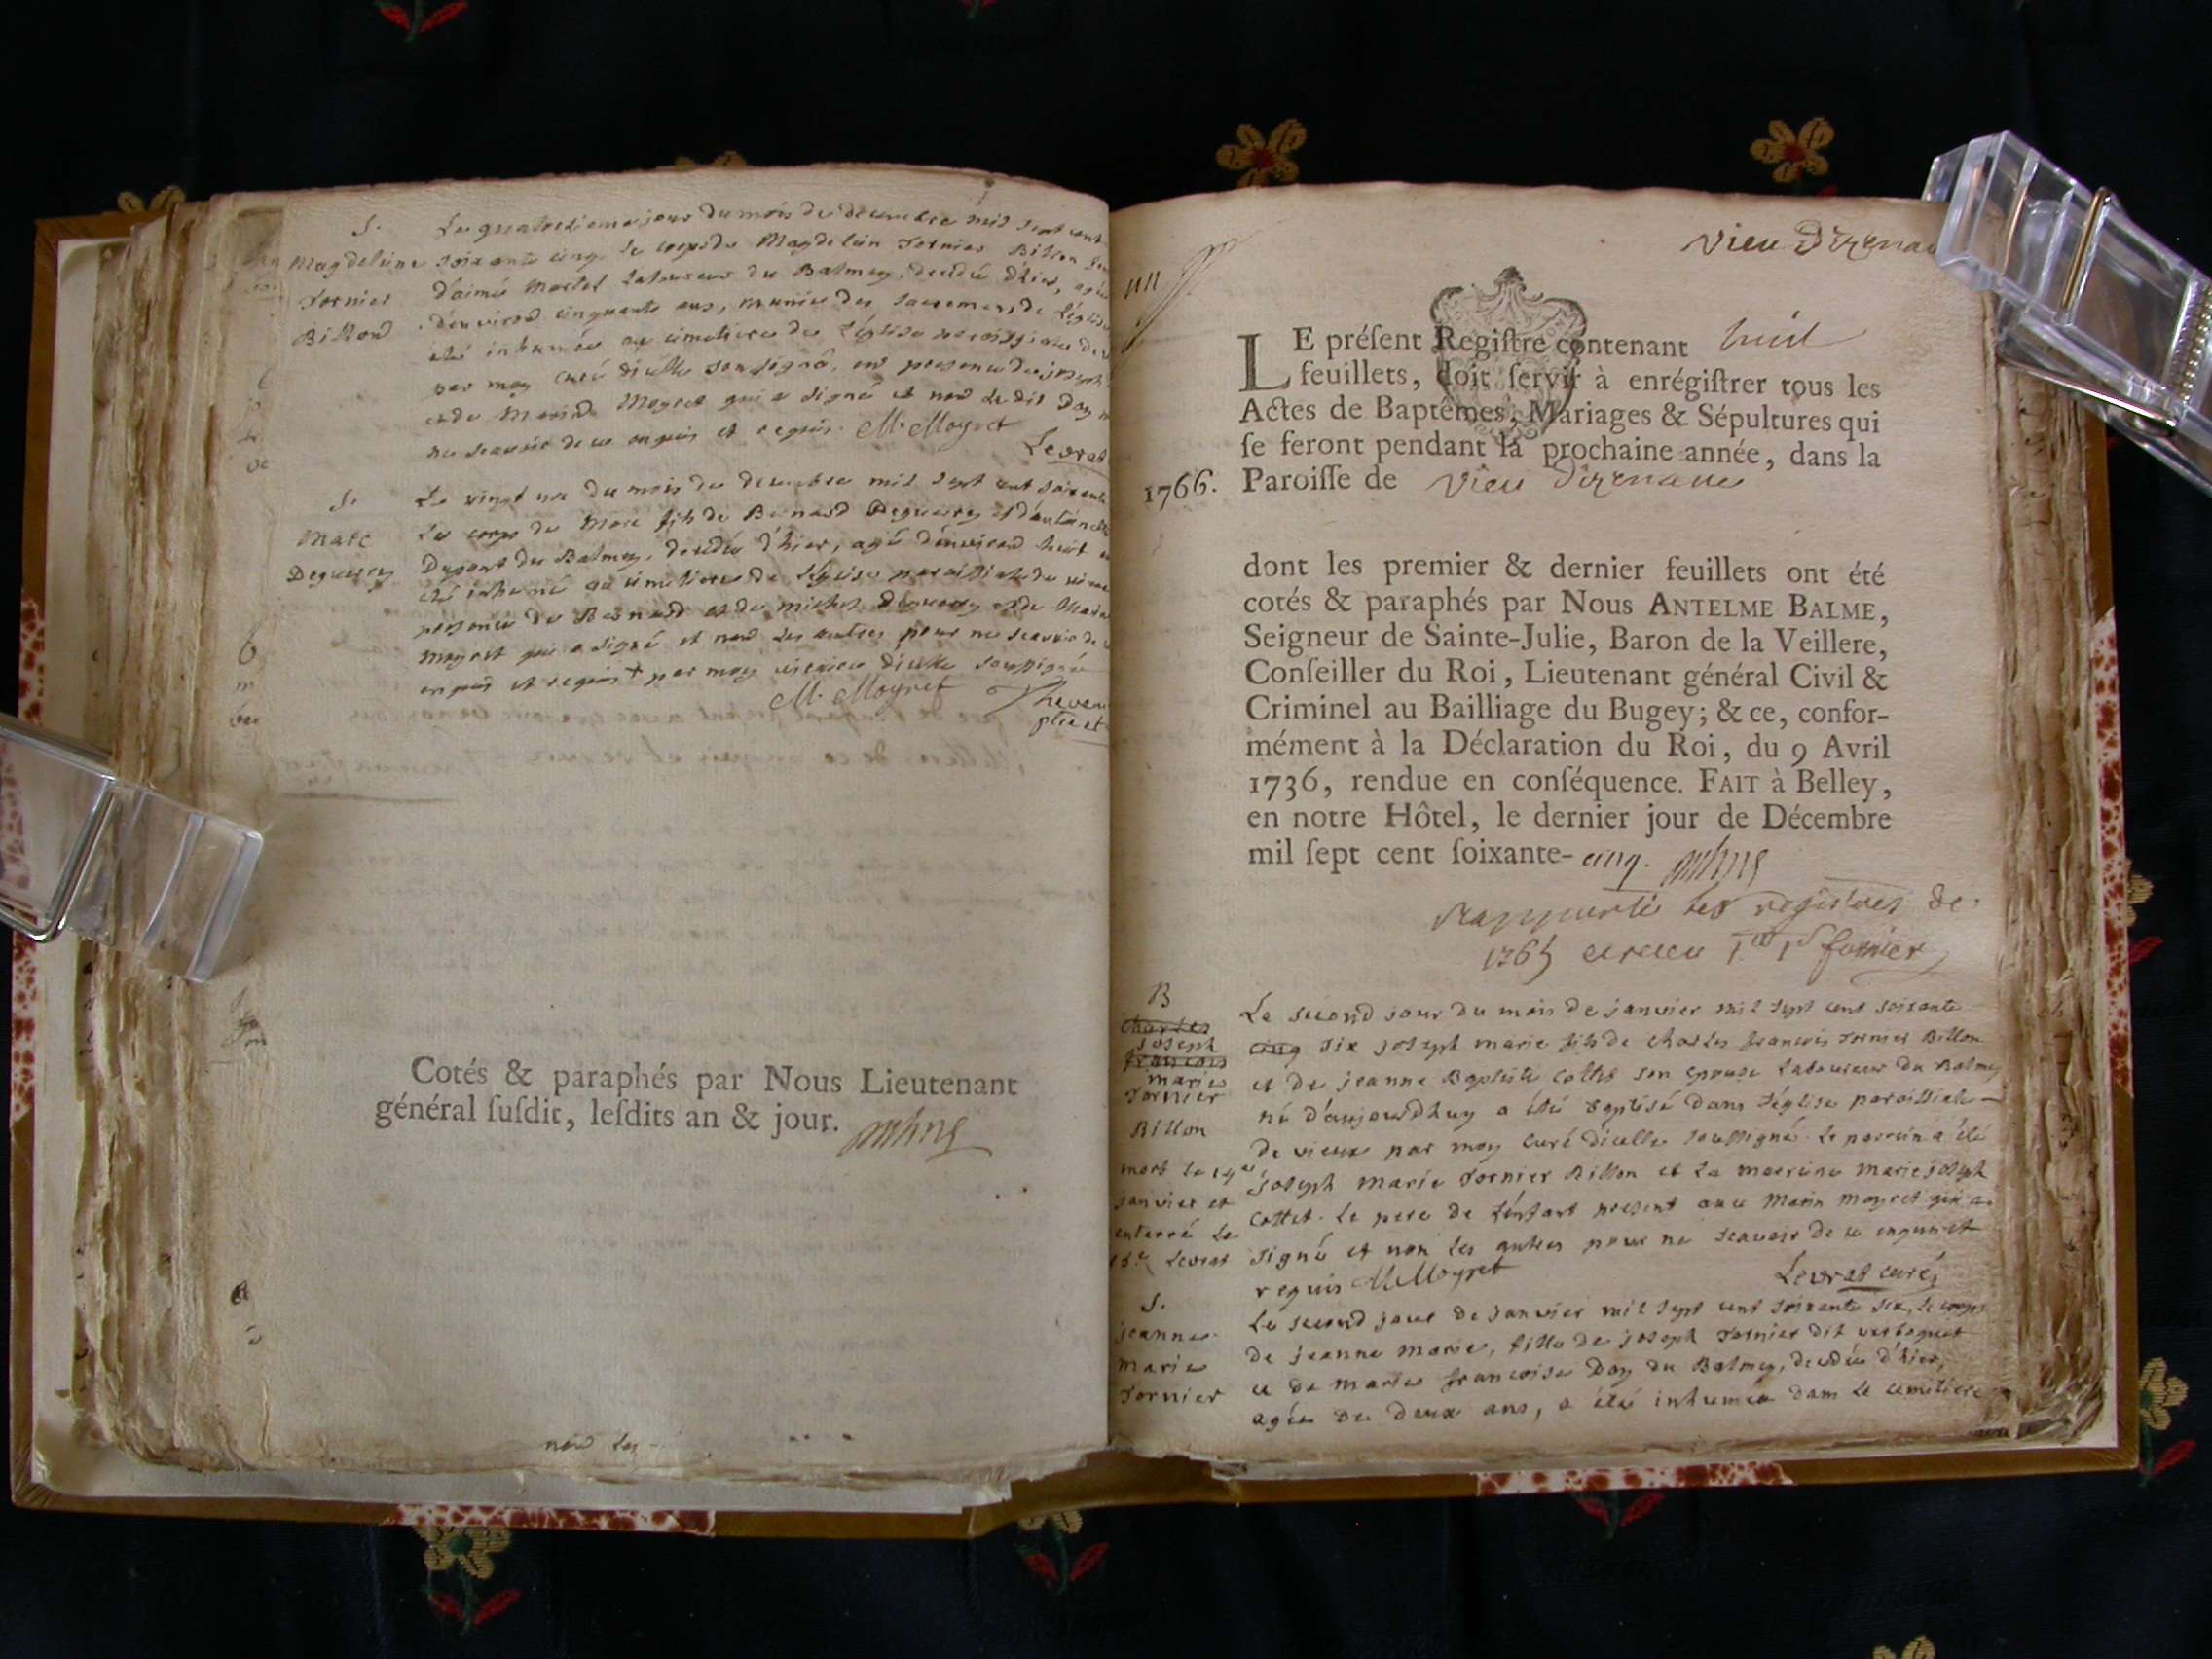 S.
Magdeleine
Tornier
Billond
Le quatorzieme jour du mois de decembre mil sept cent
soixante cinq le corps de Magdelein Tornier Billon
d'aimé Martel Laboureur du Balmey, decedée d'hier, agée
d'environ cinquante ans, munie des sacremens de l'église
été inhumée au cimetiere de l'église paroissiale de
par moy curé d'icelle soussigné, en presence de joseph
et de Marin Moyret qui a signé et non le dit Doy
ne scavoir de ce enquis et requis. M. Moyret
Levrat
S.
Marc
Deguerry
Le vingt un du mois de decembre mil sept cent soixante
Le corps de Marc fils de Bernard Deguerry et d'antoinette
Dupont du Balmey, decedé d'hier, agé d'environ huit
été inhumé au cimetiere de l'église paroissiale de vieu
presence de Bernard et de michel Deguerry et de Marin
Moyret qui a signé et non les autres pour ne scavoir de
enquis et requis + par moy vicaire d'icelle soussigné
M. Moyret
Cotés & paraphés par Nous Lieutenant
général ſuſdit, leſdits an & jour.
non les
Vieu Dizenave
un
LE préſent Regiſtre contenant huit
feuillets, doit ſervir à enrégiſtrer tous les
Actes de Baptêmes, Mariages & Sépultures qui
ſe feront pendant la prochaine année, dans la
1766. Paroiſſe de Vieu Dizenave
dont les premier & dernier feuillets ont été
cotés & paraphés par Nous ANTELME BALME,
Seigneur de Sainte-Julie, Baron de la Veillere,
Conſeiller du Roi, Lieutenant général Civil &
Criminel au Bailliage du Bugey; & ce, confor-
mément à la Déclaration du Roi, du 9 Avril
1736, rendue en conſéquence. FAIT à Belley,
en notre Hôtel, le dernier jour de Décembre
mil ſept cent ſoixante-cinq.
Rapporté les registres de
1765
B
Charles
joseph
francois
marie
Tornier
Billon
mort le 14e
janvier et
enterré le
Levrat
Le second jour du mois de janvier mil sept cent soixante
cinq six joseph marie fils de charles francois Tornier Billon
et de jeanne Baptiste Cottet son epouse Laboureur du Balmey
né d'aujourdhuy a été baptisé dans l'église paroissiale
de vieux par moy curé d'icelle soussigné. Le parrain a été
joseph marie Tornier Billon et la marrine marie joseph
Cottet. Le pere de l'enfant present avec Marin Moyret qui a
signé et non les autres pour ne scavoir de ce enquis et
requis M. Moyret
Levrat curé
S.
jeanne
marie
Tornier
Le second jour de janvier mil sept cent soixante six, le corps
de jeanne marie, fille de joseph Tornier dit
et de marie francoise Doy du Balmey, decedée d'hier,
agée de deux ans, a été inhumée dans le cimetiere